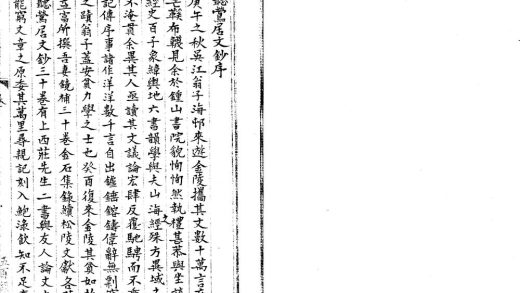 聽鶯居文鈔序
庚午之秋吳江翁子海邨來遊金陵攜其文數十萬言
芒鞵布韈見余於鍾山書院貌恂恂然執禮甚恭與坐
經史百子象緯輿地六書韻學與夫山海經殊方異域之
不淹貫余異其人亟讀其文議論宏肆反覆馳騁而不
記傳序事諸作洋洋數千言自出鑪鎔鑄偉辭無剽
之蹟翁子蓋安貧力學之士也癸酉復來金陵其貧如
富所撰吾妻鏡補三十卷金石集錄續松陵文獻各
聽鶯居文鈔三十卷有上西莊先生二書與友人論文
能窮文章之原委其萬里尋親記刻入鮑淥飲知不足